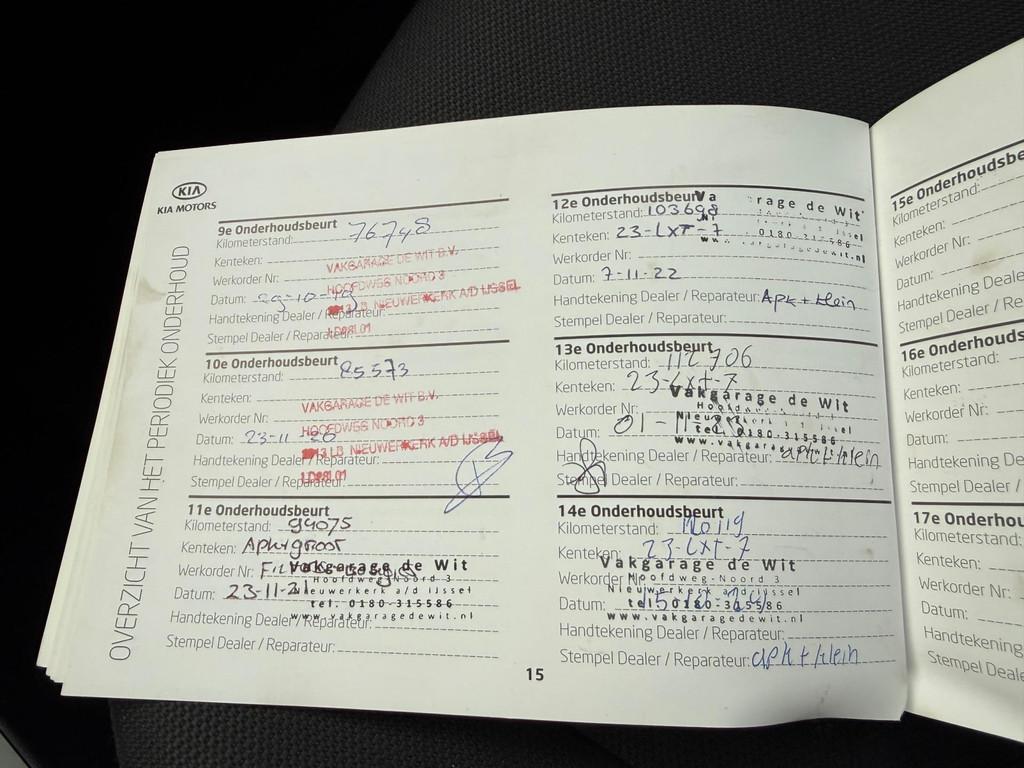 KIA
KIA MOTORS
OVERZICHT VAN HET PERIODIEK ONDERHOUD
9e Onderhoudsbeurt
Kilometerstand: 76748
Kenteken:
VAKGARAGE DE WIT B.V.
Werkorder Nr:
HOOFDWEG NOORD 3
Datum: 29-10-19
LB NIEUWERKERK A/D IJSSEL
Handtekening Dealer / Reparateur:
Stempel Dealer / Reparateur:
10e Onderhoudsbeurt
Kilometerstand: 85573
Kenteken:
VAKGARAGE DE WIT B.V.
Werkorder Nr:
HOOFDWEG NOORD 3
Datum: 23-11-20
LB NIEUWERKERK A/D IJSSEL
Handtekening Dealer / Reparateur:
Stempel Dealer / Reparateur:
11e Onderhoudsbeurt
Kilometerstand: 94075
Kenteken: Apk+groot
Werkorder Nr:
Vakgarage de Wit
Hoofdweg-Noord 3
Datum: 23-11-21
Nieuwerkerk a/d ijssel
tel. 0180-315586
Handtekening Dealer / Reparateur:
www.vakgaragedewit.nl
Stempel Dealer / Reparateur:
12e Onderhoudsbeurt
rage de Wit
Kilometerstand: 103698
Kenteken: 23-LXT-7
0180-315586
Werkorder Nr:
Datum: 7-11-22
Handtekening Dealer / Reparateur: Apk + klein
Stempel Dealer / Reparateur:
13e Onderhoudsbeurt
Kilometerstand: 112706
Kenteken: 23-LXT-7
Vakgarage de Wit
Werkorder Nr:
Datum: 01-11
tel. 0180-315586
Handtekening Dealer / Reparateur: apk + klein
Stempel Dealer / Reparateur:
14e Onderhoudsbeurt
Kilometerstand: 120119
Kenteken: 23-LXT-7
Vakgarage de Wit
Werkorder Hoofdweg-Noord 3
Nieuwerkerk a/d ijssel
Datum:
tel. 0180-315586
www.vakgaragedewit.nl
Handtekening Dealer / Reparateur:
Stempel Dealer / Reparateur: apk + klein
15
15e Onderhoudsbe
Kilometerstand:
Kenteken:
Werkorder Nr:
Datum:
Handtekening Dealer
Stempel Dealer / Re
16e Onderhouds
Kilometerstand:
Kenteken:
Werkorder Nr:
Datum:
Handtekening De
Stempel Dealer /
17e Onderhou
Kilometerstand:
Kenteken:
Werkorder N
Datum:
Handtekening
Stempel Deale